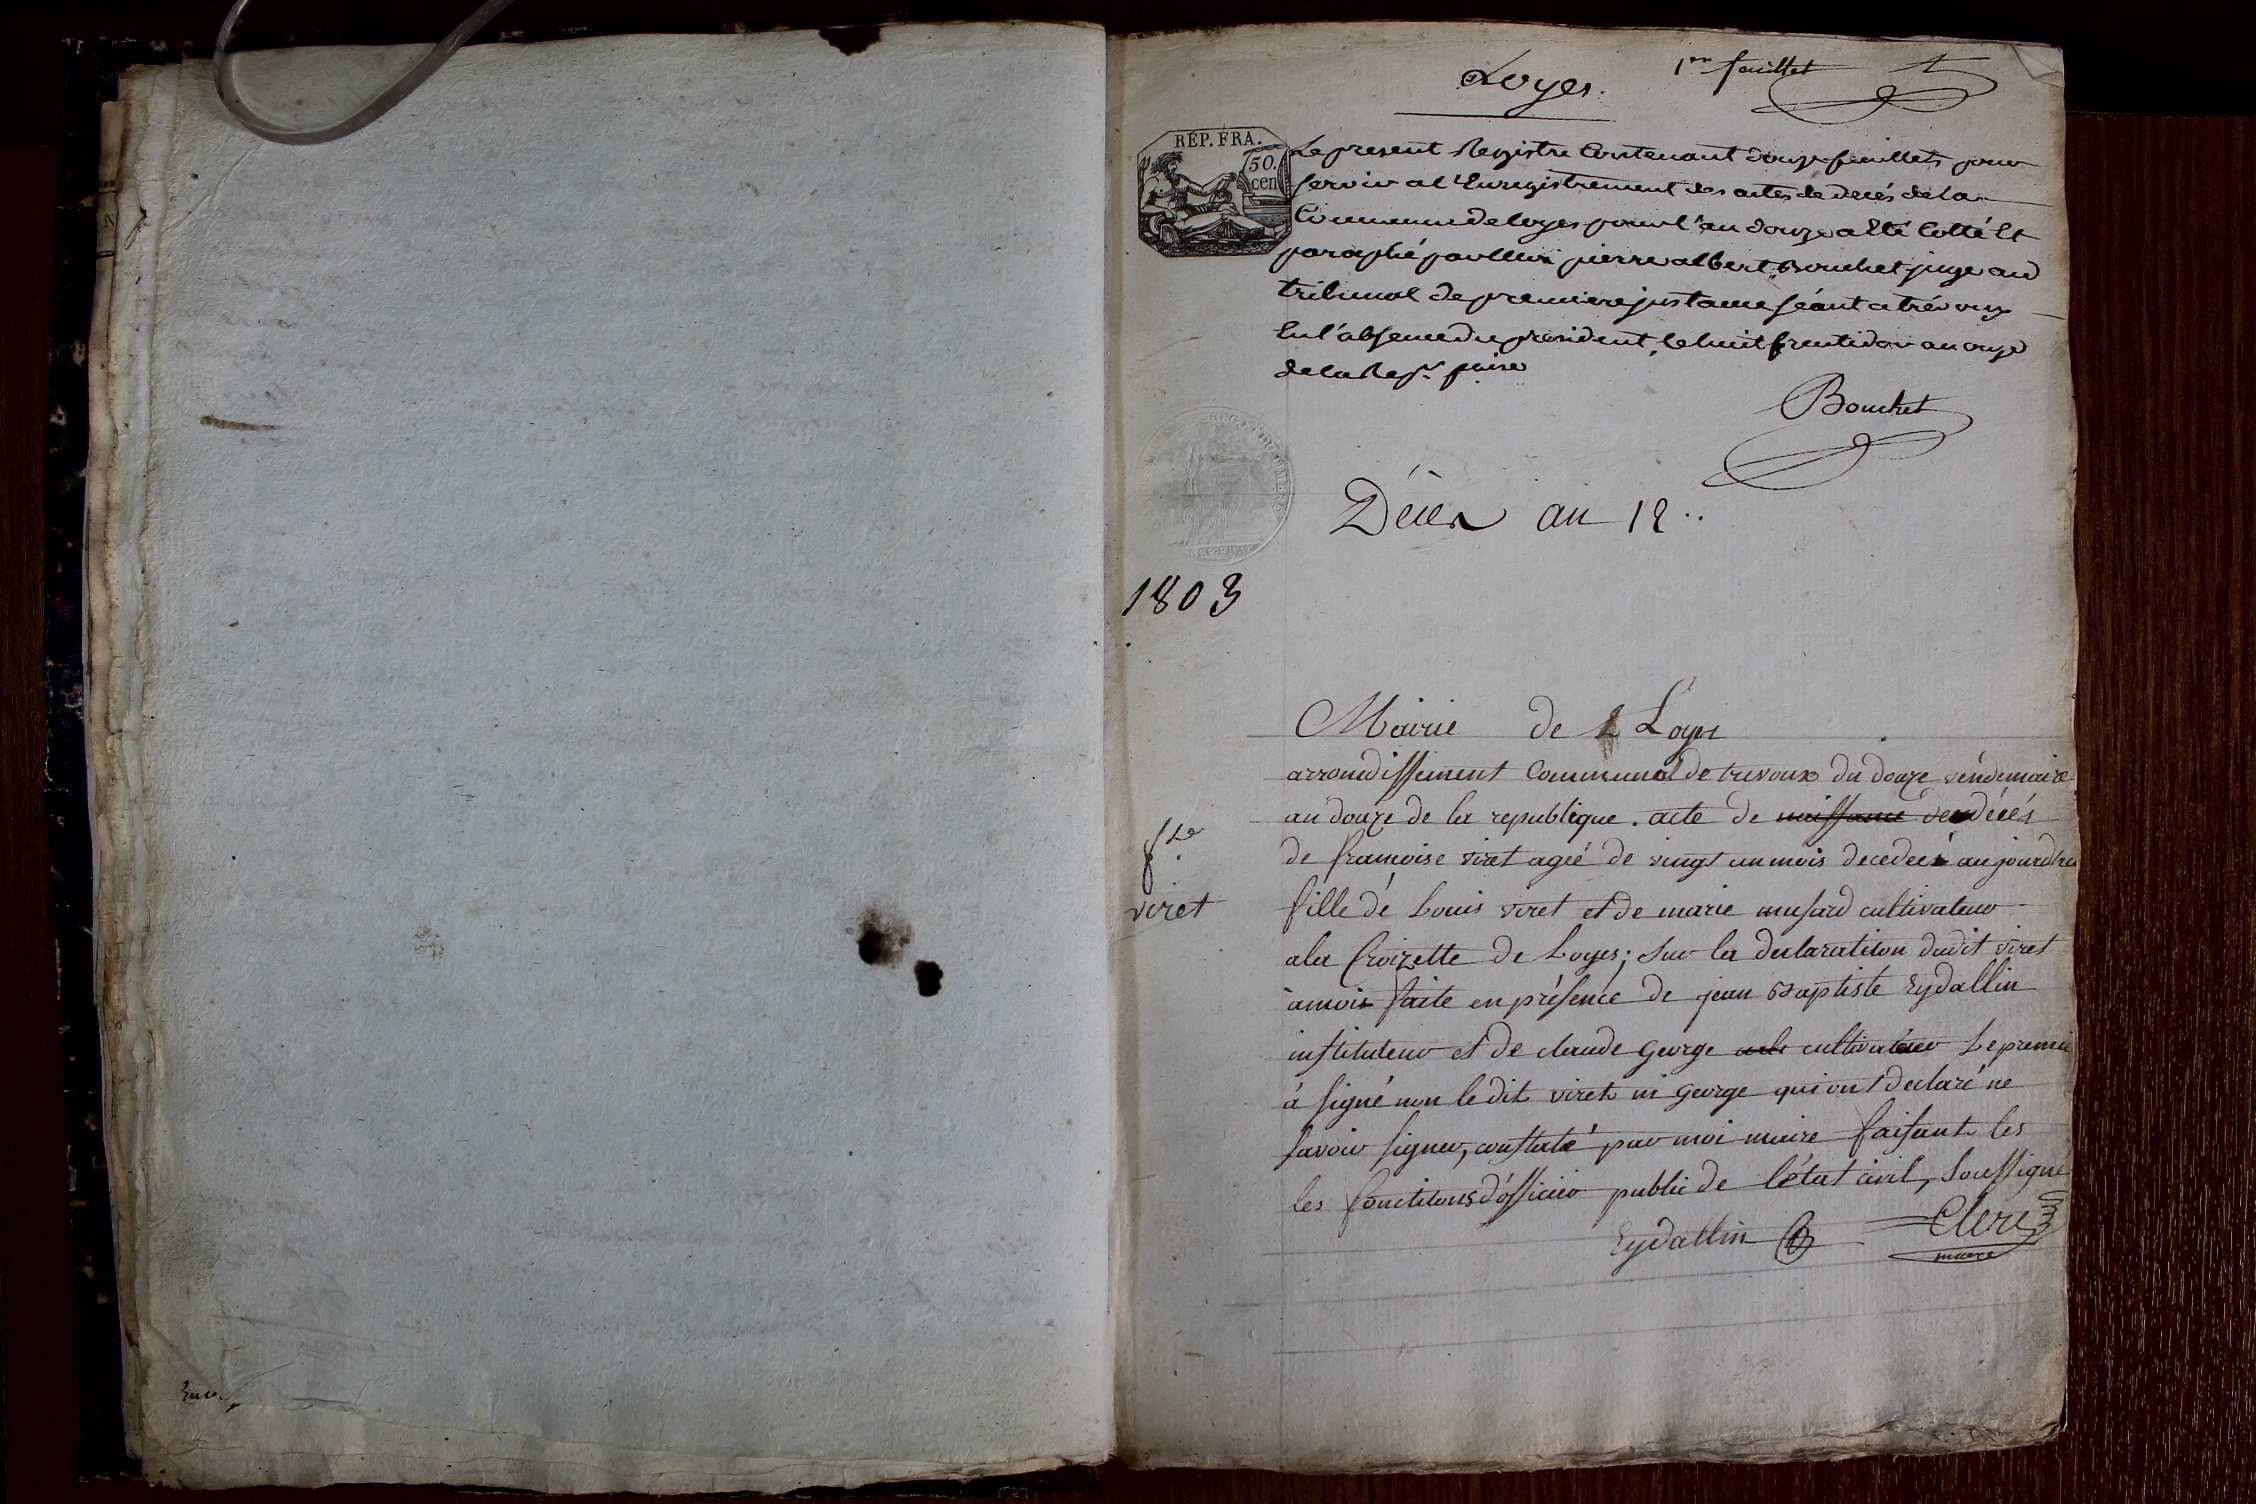 Loyes.
1er feuillet
REP. FRA.
50.
cen
Le present Registre Contenant douze feuillets pour
servir a l'Enregistrement des actes de decés de la
Commune de loyes pour l'an douze a Eté Cotté Et
paraphé par Nous pierre albert Bouchet juge au
tribunal de premiere justance séant a trévoux
En l'absence du president, le huit fructidor an onze
de la Rep.
Bouchet
Décès an 12..
1803
Mairie de Loyes
arrondissement Communal de trevoux du douze vendemaire
an douze de la republique. acte de naissance de décés
de francoise viret ageé de vingt un mois decedeé aujourdhui
fille dé Louis viret et de marie musard cultivateur
ala Croizette de Loyes; sur la declaration dudit viret
amoi faite en présence de jean Baptiste Eydallin
instituteur et de claude George cultivateur Le premier
à signé non ledit viret ni George qui ont declaré ne
savoir signer, constaté par moi maire faisant les
les fonctions d'officier public de l'état civil, soussigné
fse
viret
Eydallin
Clerc
maire